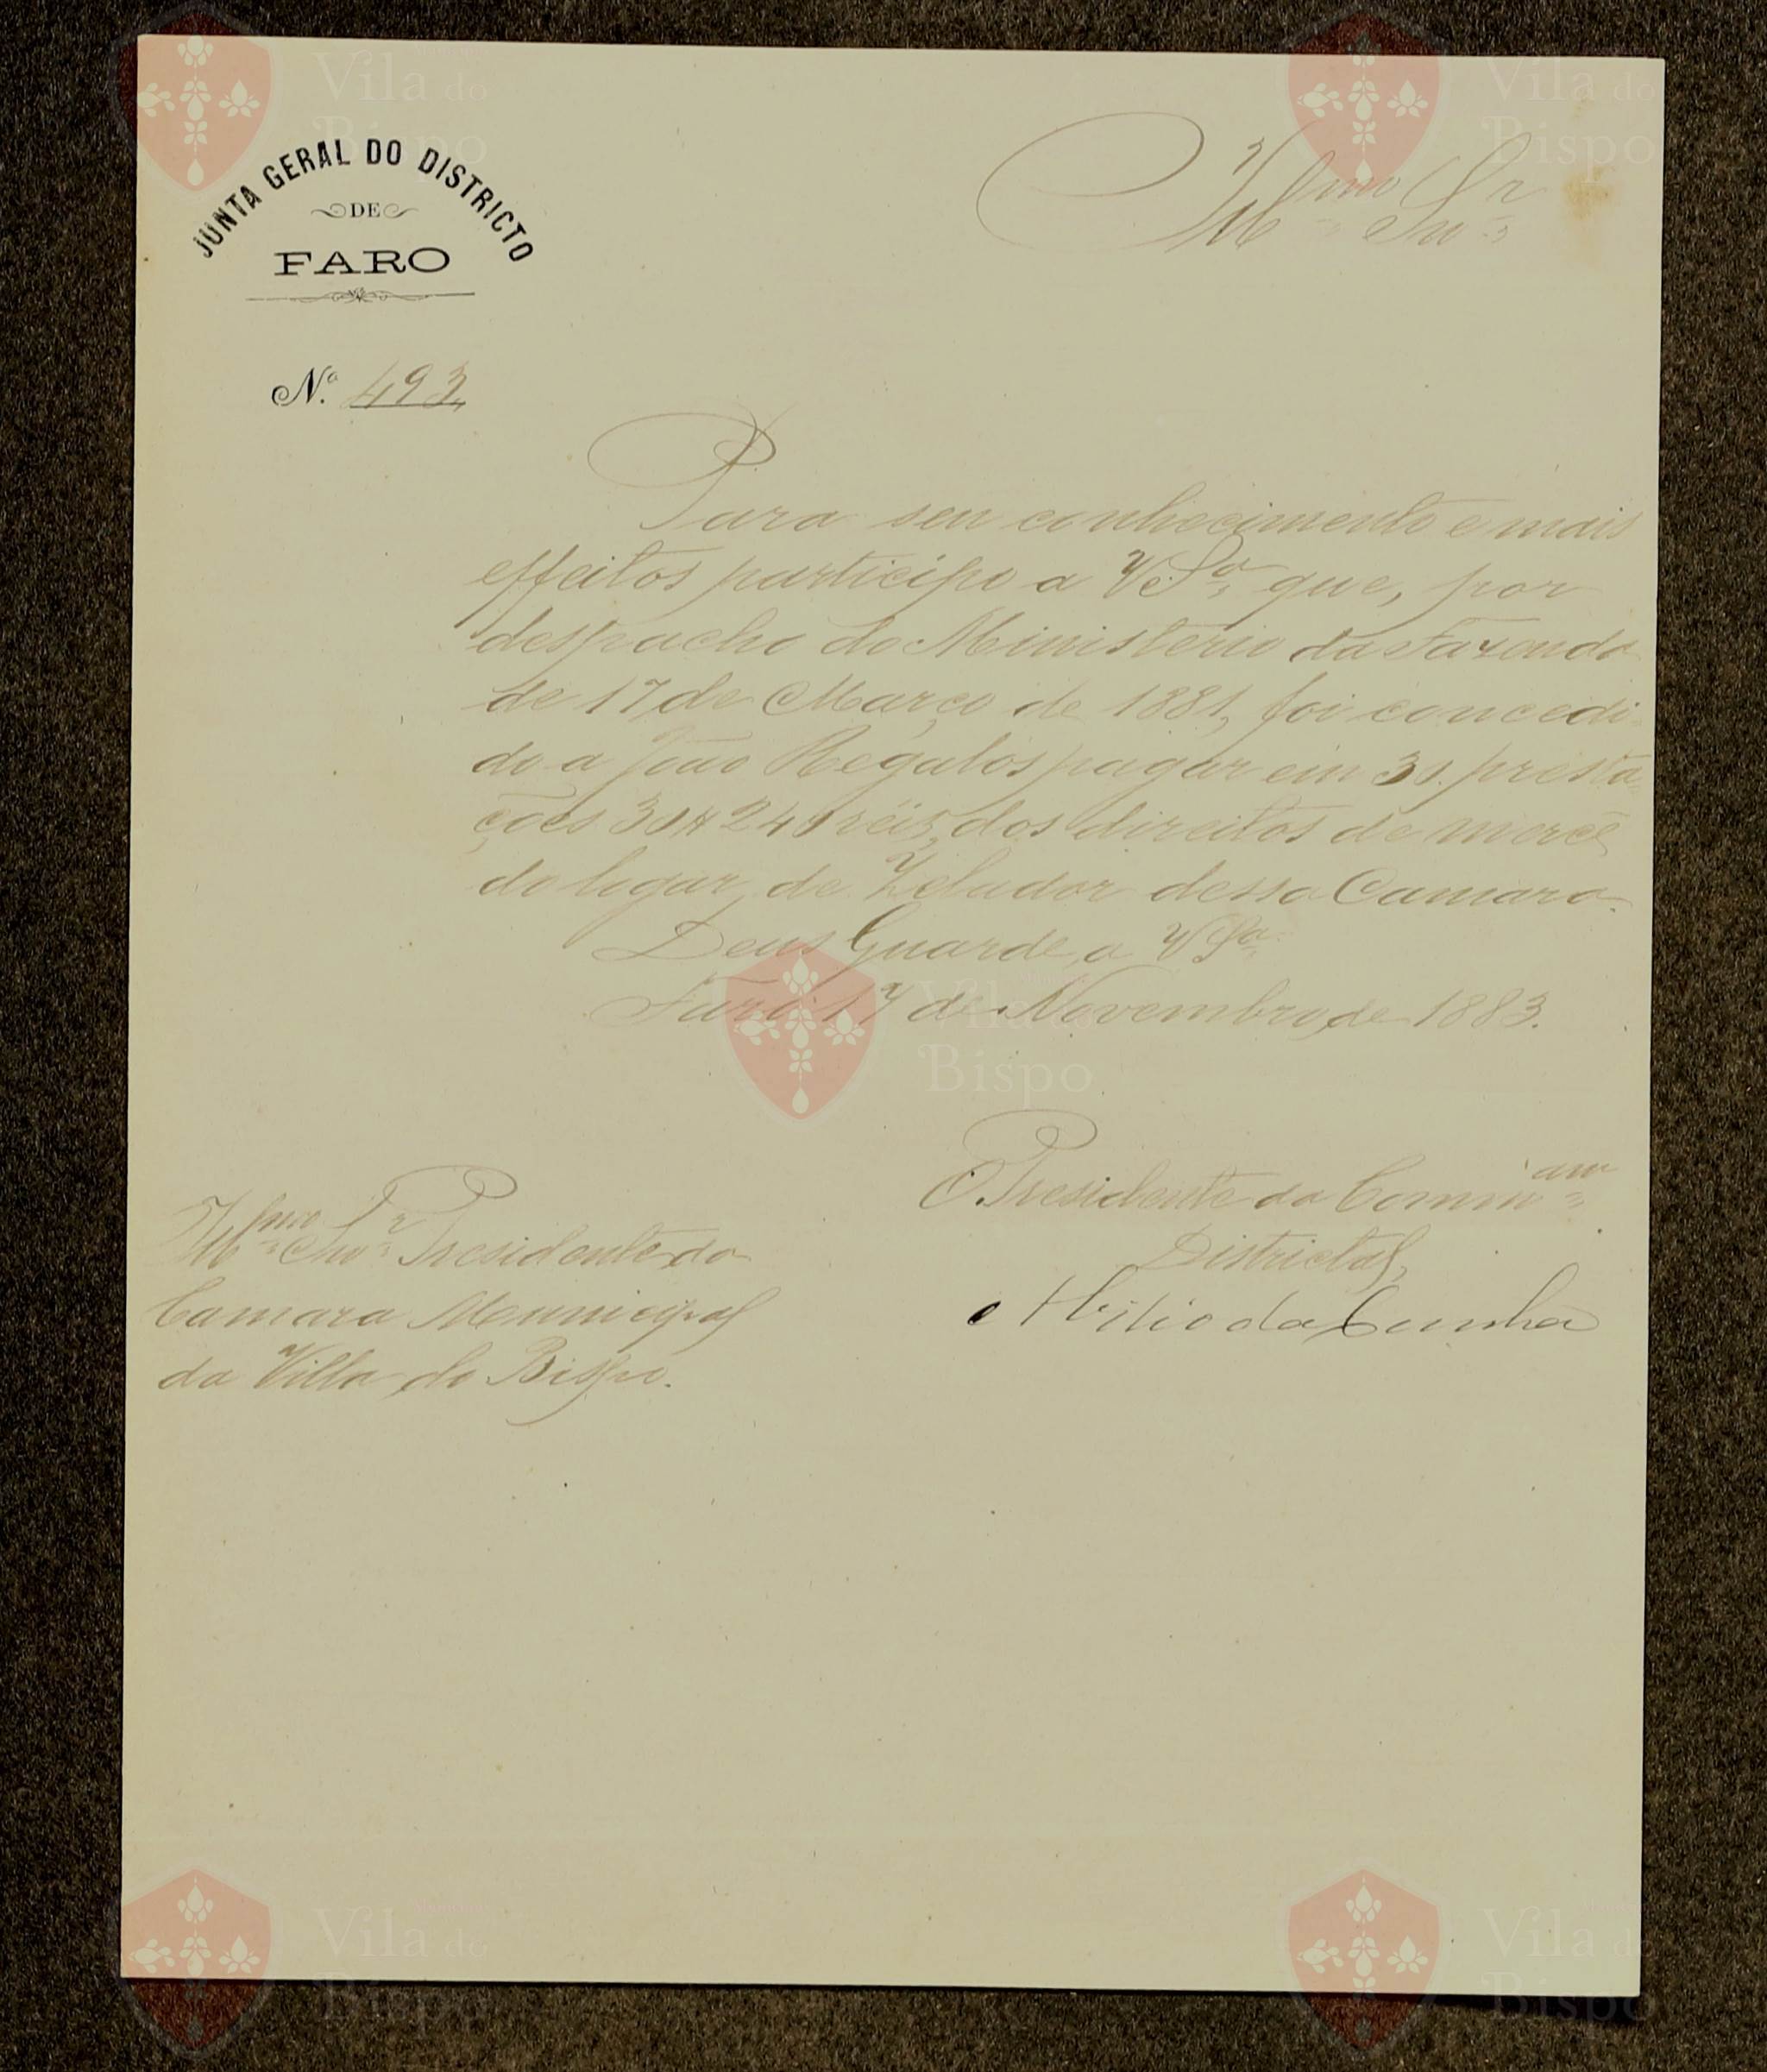 JUNTA GERAL DO DISTRICTO
DE
FARO
Nº 493
Illmo Snr
Para seu conhecimento e mais
effeitos participo a V Sª que, por
despacho do Ministerio da Fazenda
de 17 de Março de 1881, foi concedi-
do a João Regalos pagar em 30 presta-
ções 30$240 réis, dos direitos de mercê
do logar de Zelador dessa Camara.
Deus Guarde a V Sª
Faro 17 de Novembro de 1883.
O Presidente da Commam
Districtal,
da Cunha
Illmo Snr Presidente da
Camara Municipal
da Villa do Bispo.
Vila do
Bispo
Vila do
Bispo
Vila do
Bispo
Vila do
Bispo
Vila do
Bispo